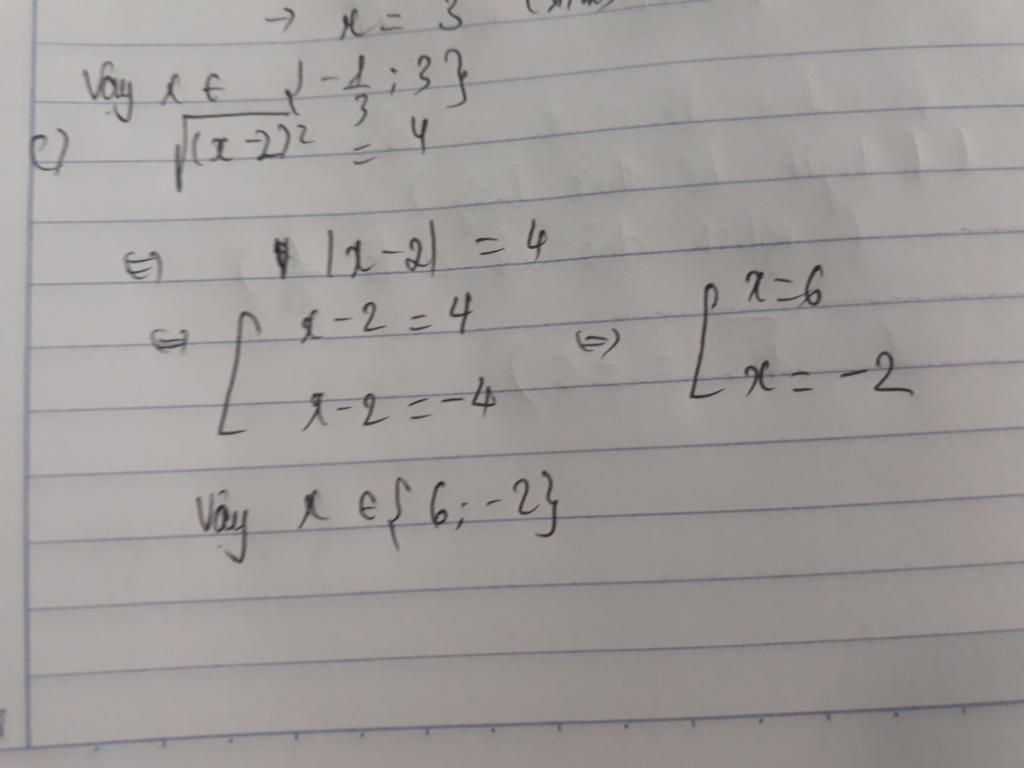 → x = 3
Vậy x ∈ {-1/3; 3}
c) √(x-2)² = 4
⇔ |x-2| = 4
⇔ [ x-2 = 4 ⇔ [ x=6
x-2 = -4 x = -2
Vậy x ∈ {6; -2}